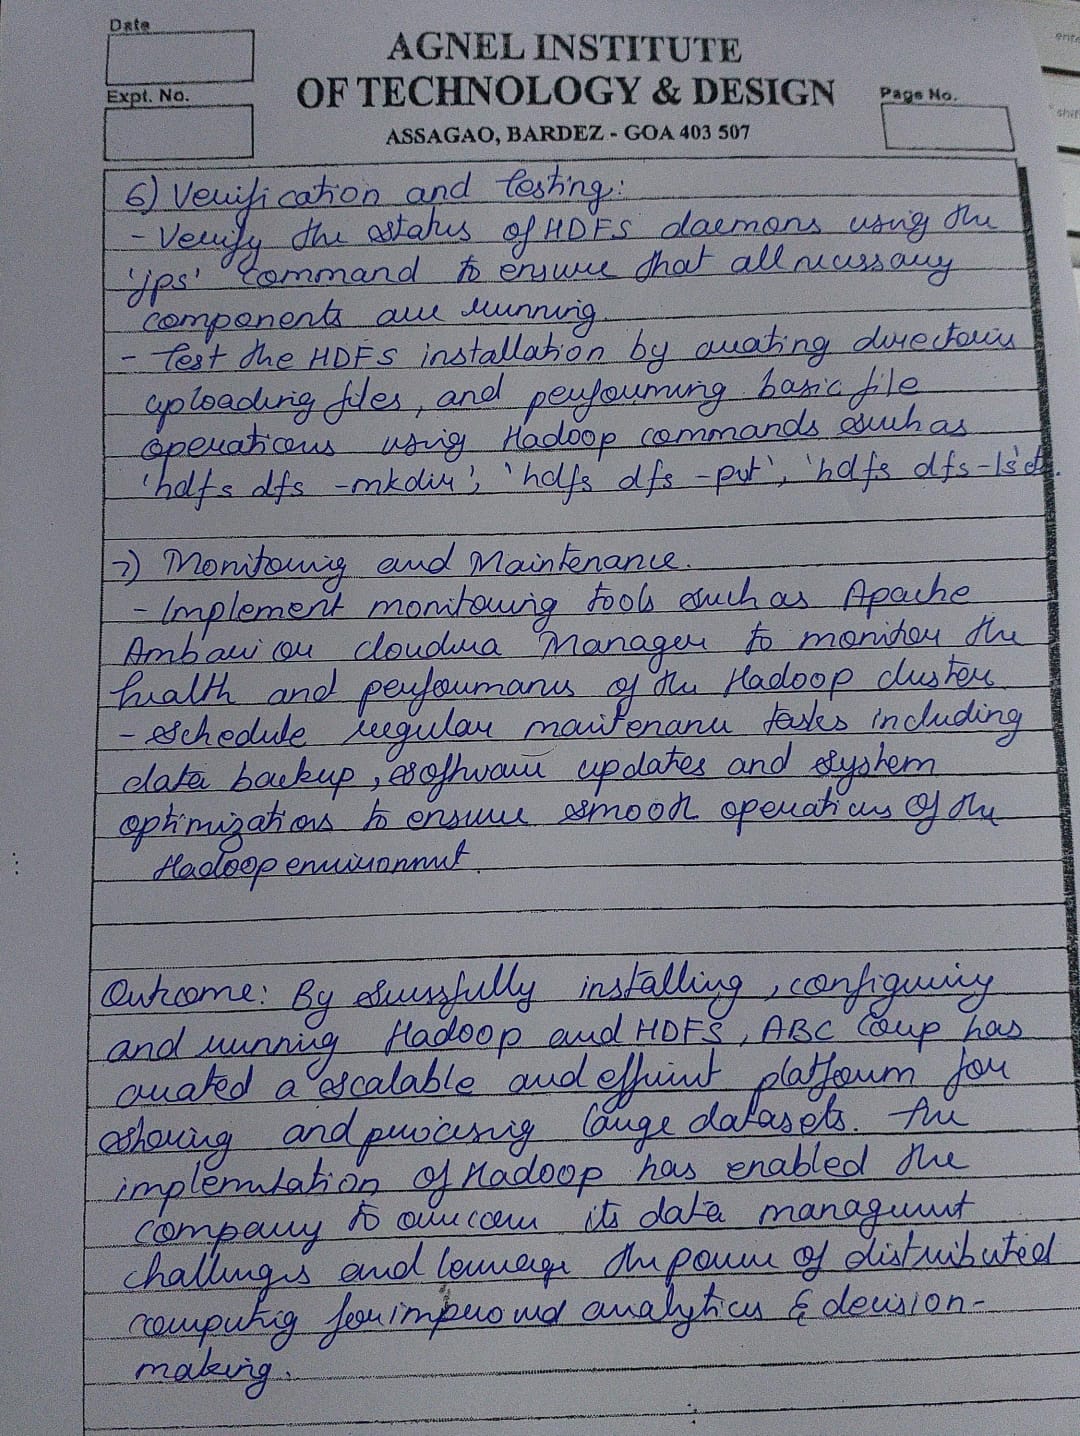 Date
AGNEL INSTITUTE
OF TECHNOLOGY & DESIGN
Expt. No.
Page No.
ASSAGAO, BARDEZ - GOA 403 507
6) Verification and testing:
- Verify the status of HDFS daemons using the
'jps' command to ensure that all necessary
components are running.
- Test the HDFS installation by creating directories
uploading files, and performing basic file
operations using Hadoop commands such as
'hdfs dfs -mkdir', 'hdfs dfs -put', 'hdfs dfs -ls' etc.
7) Monitoring and Maintenance.
- Implement monitoring tools such as Apache
Ambari or cloudera Manager to monitor the
health and performance of the Hadoop cluster.
- Schedule regular maintenance tasks including
data backup, software updates and system
optimizations to ensure smooth operations of the
Hadoop environment.
Outcome: By successfully installing, configuring
and running Hadoop and HDFS, ABC Corp has
created a scalable and efficient platform for
storing and processing large datasets. The
implementation of Hadoop has enabled the
company to overcome its data management
challenges and leverage the power of distributed
computing for improved analytics & decision-
making.